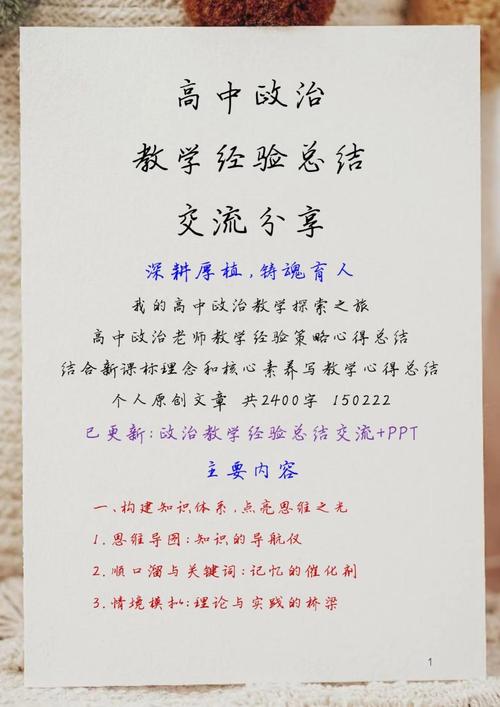 高中政治
教学经验总结
交流分享
深耕厚植,铸魂育人
我的高中政治教学探索之旅
高中政治老师教学经验策略心得总结
结合新课标理念和核心素养写教学心得总结
个人原创文章 共2400字 150222
已更新:政治教学经验总结交流+PPT
主要内容
一、构建知识体系,点亮思维之光
1.思维导图:知识的导航仪
2.顺口溜与关键词:记忆的催化剂
3.情境模拟:理论与实践的桥梁
1